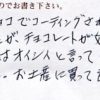 のでお書き下さい。
ョコでコーティングさ
が、チョコレートが
はオインと言って
、お土産に買って